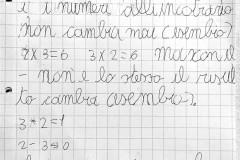 i i numeri all'incontrario
non cambia mai (esembio)
2 X 3 = 6 3 X 2 = 6 ma con il
- non è lo stesso il risul
to cambia (esembio).
3 - 2 = 1
2 - 3 = 0